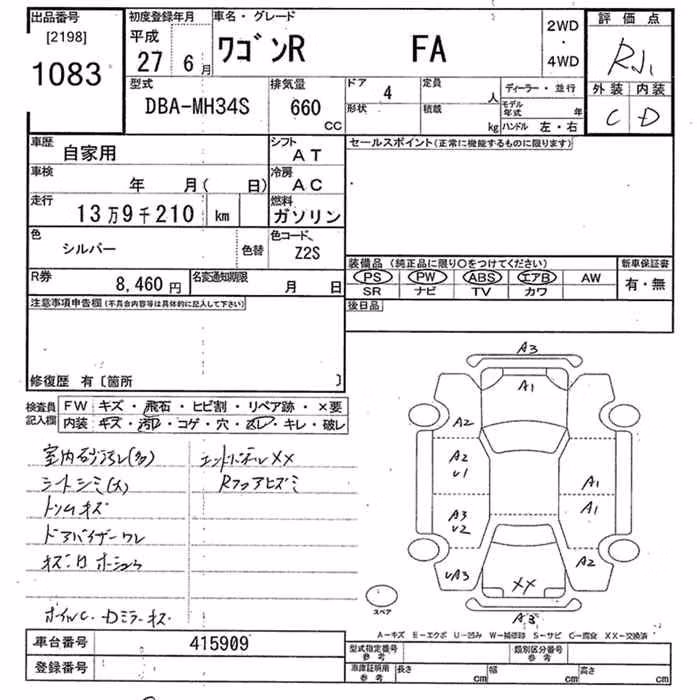 出品番号 初度登録年月 車名・グレード 評価点
[2198] 平成 2WD
1083 27年 6月 ワゴンR FA ・ 4WD
型式 排気量 ドア 4 定員 人 ディーラー・並行 外装 内装
DBA-MH34S 660 CC 形状 積載 kg モデル年式 年 C D
ハンドル 左・右
車歴 自家用 シフト AT セールスポイント(正常に機能するものに限ります)
車検 年 月( 日) 冷房 AC
走行 13万9千210 km 燃料 ガソリン
色 シルバー 色替 色コード Z2S
装備品 (純正品に限り○をつけてください) 新車保証書
R券 8,460円 名変通知期限 月 日 PS PW ABS エアB AW 有・無
SR ナビ TV カワ
注意事項申告欄(不具合内容等は具体的に記入して下さい) 後日品
修復歴 有〔箇所 〕
検査員 FW キズ・飛石・ヒビ割・リペア跡・×要
記入欄 内装 キズ・汚レ・コゲ・穴・ズレ・キレ・破レ
XX
シートシミ(大) Rフロアヒズミ
トリムキズ
ドアバイザーワレ
A3
A1
A2
A2
U1 A1
A3 A1
U2
UA3 XX A2
スペア
A3
A-キズ E-エクボ U-凹み W-補修跡 S-サビ C-腐食 XX-交換済
車台番号 415909 型式指定番号 参考 類別区分番号 参考
登録番号 車庫証明用 参考 長さ cm 幅 cm 高さ cm